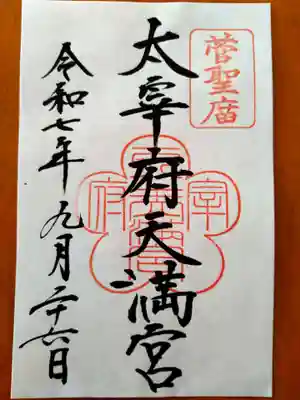 菅聖廟
太宰府天満宮
令和七年九月二十六日